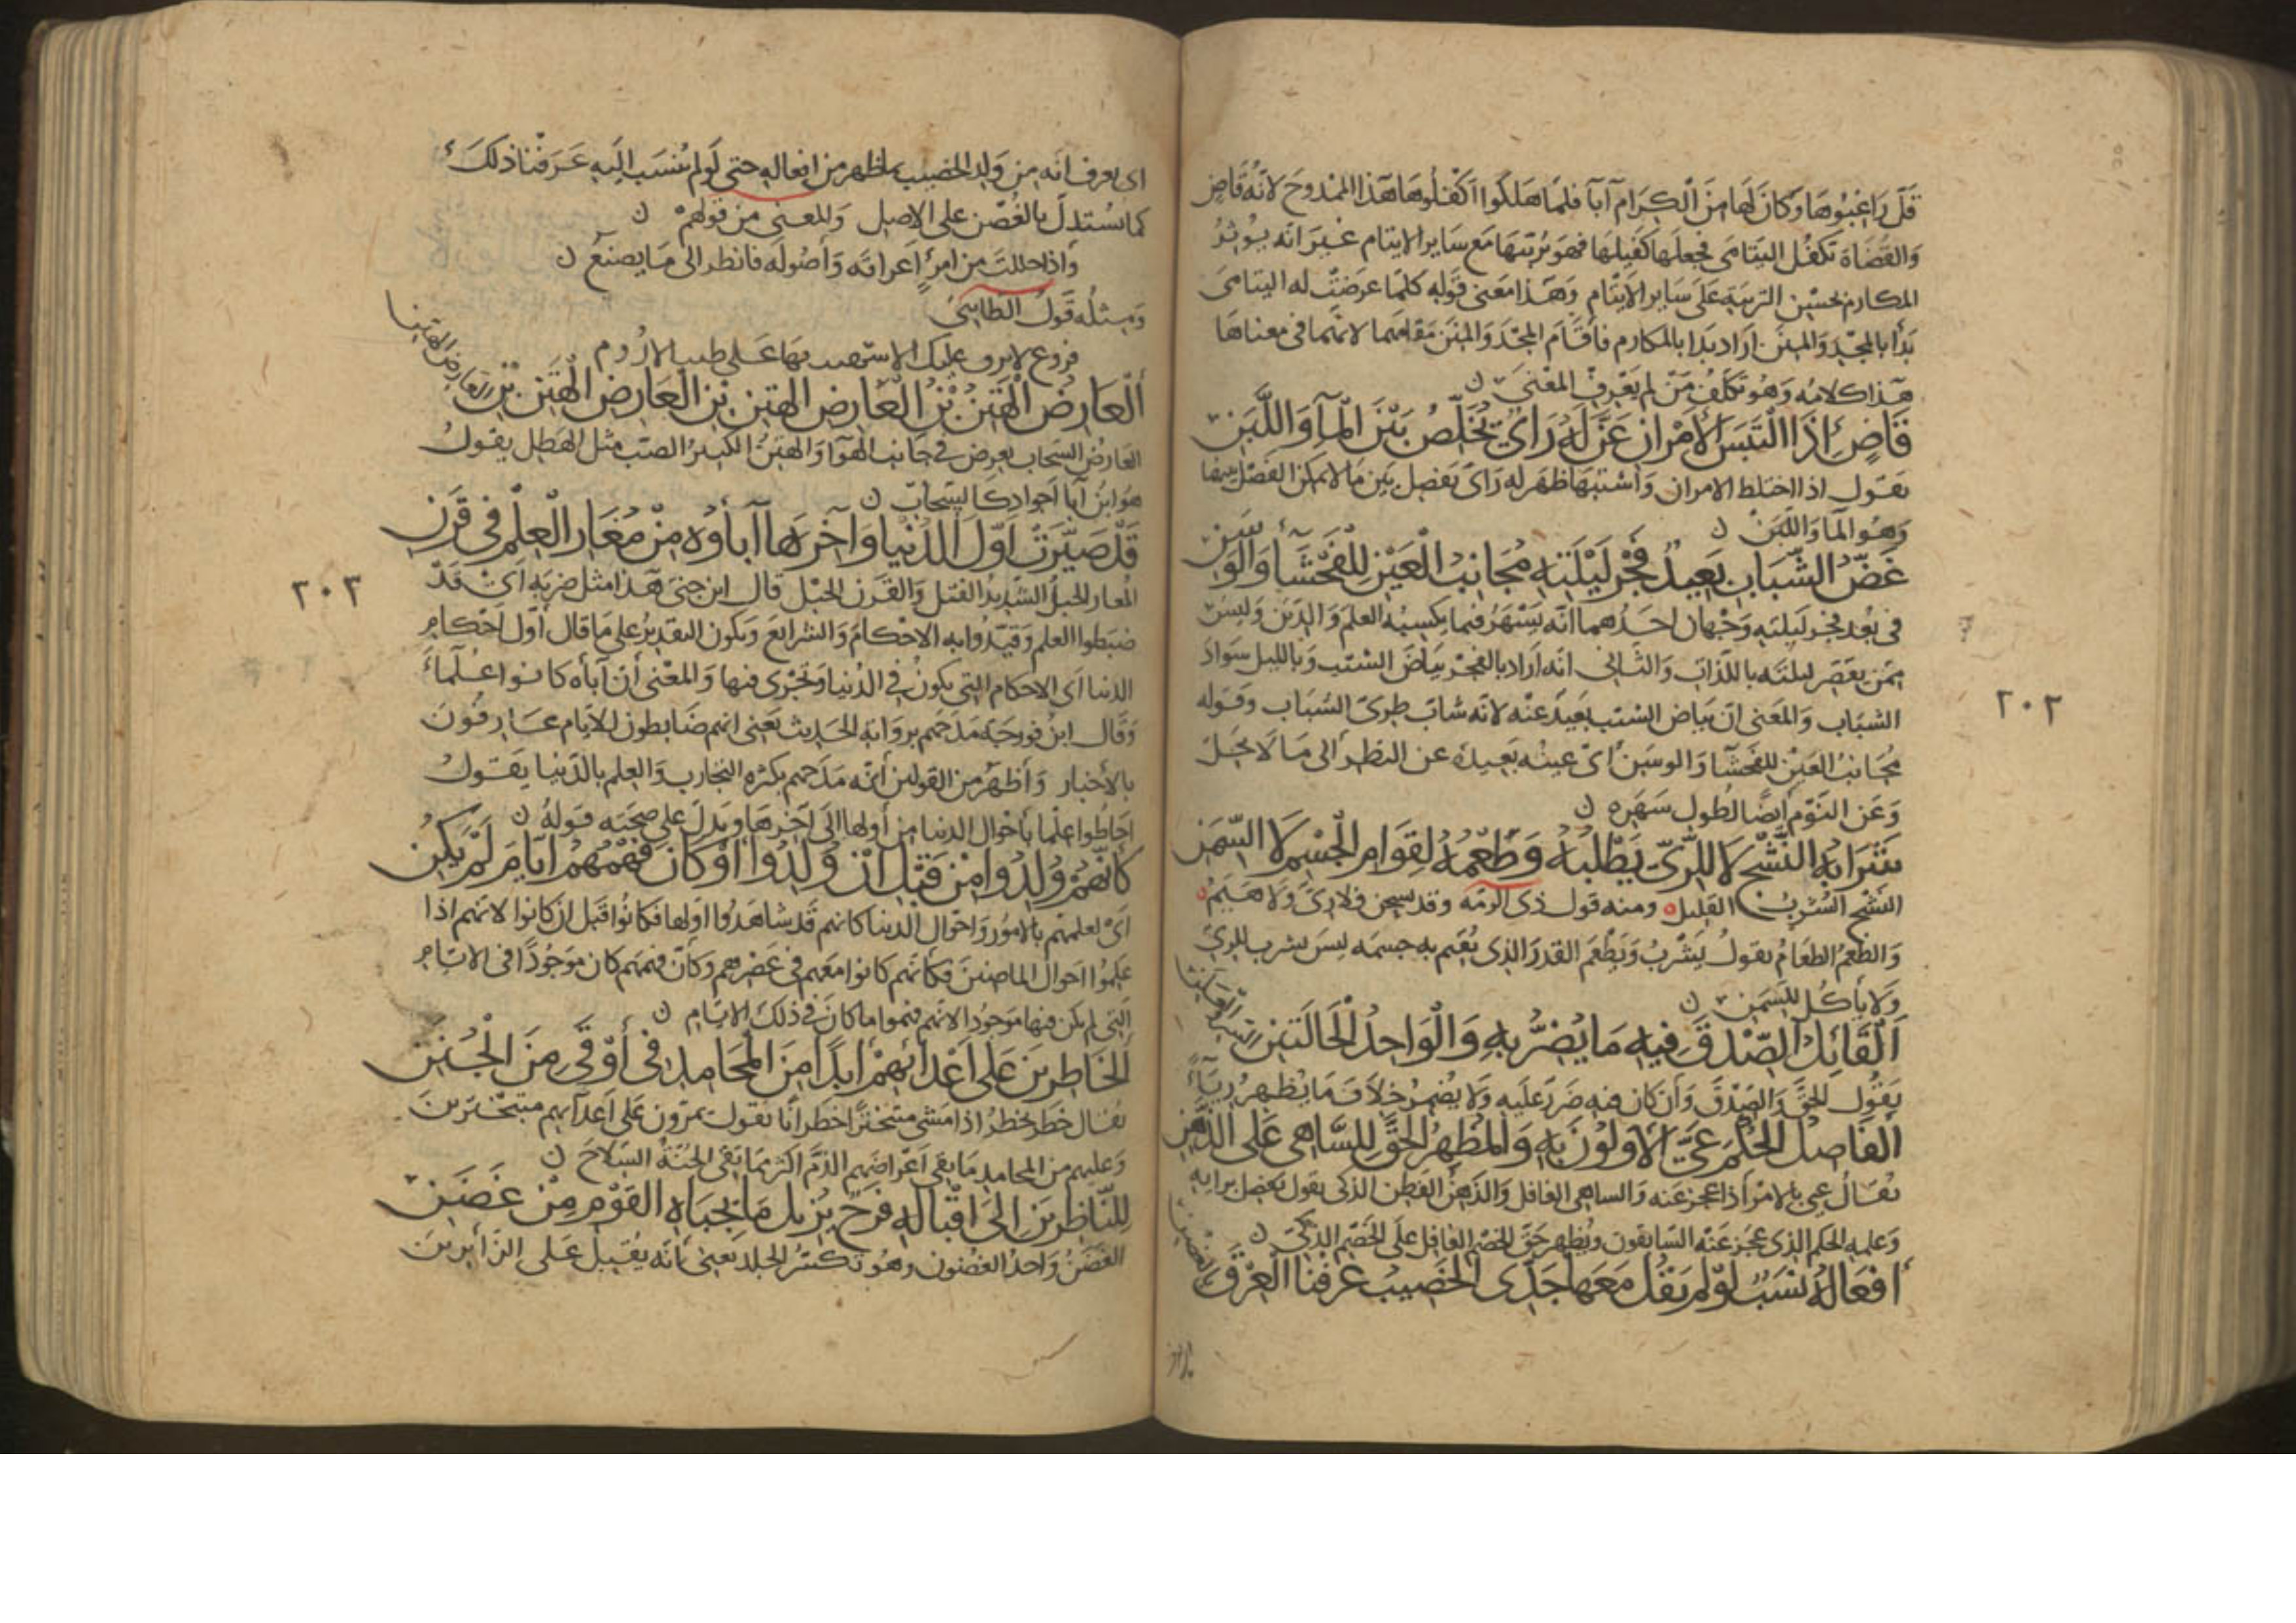 قل راغبوها وكان لها من الكرام آبآ فلما هلكوا اكفلوها هذا الممدوح لانه قاض
والقضاة تكفل اليتامى فجعلها كفيلها فهو يربيها مع ساير الايتام غير انه يوثر
المكارم بحسن التربية على ساير الايتام وهذا معنى قوله كلما عرضت له اليتامى
بدأ بالمجد والمنن اراد بدا بالمكارم فاقام المجد والمنن مقامهما لانهما في معناها
هذا كلامه وهو تكلف من لم يعرف المعنى ن
قَاضٍ اِذَا الْتَبَسَ الأمْرانِ عَنَّ لَهُ رَايٌ يُخَلِّصُ بَيْنَ الْمآ وَاللَّبَنِ
يقول اذا اختلط الامران واشتبها ظهر له رأى يفصل بين ما لا يمكن الفصل بينهما
وهو المآ واللبن ن
غَضُّ الشَّبَابِ بَعِيدٌ فَجْرُ لَيْلَتِهِ مُجَانِبُ الْعَيْنِ لِلْفَحْشَآءِ وَالْوَسَنِ
في بعد فجر ليلته وجهان احدهما انه يسهر فيما يكسبه العلم والدين وليس
ممن يقصر ليلته باللذات والثانى انه اراد بالفجر بياض الشيب وبالليل سواد
الشباب والمعنى ان بياض الشيب بعيد عنه لانه شاب طرى الشباب وقوله
مجانب العين للفحشآ والوسن اى عينه بعيدة عن النظر الى ما لا يحل
وعن النوم ايضا لطول سهره ن
شَرَابُهُ النَّشْحُ لاَ لِلرِّيِّ يَطْلُبُهُ وَطُعْمُهُ لِقِوَامِ الْجِسْمِ لاَ السِّمَنِ
النشح الشرب القليل ومنه قول ذى الرمه وقد نشحن فلا رى ولا هيم
والطعم الطعام يقول يشرب ويطعم القدر الذى يقيم به جسمه ليس يشرب للرى
ولا يأكل للسمن ن
اَلْقَائِلُ الصِّدْقَ فِيهِ مَا يُضِرُّ بِهِ وَالْوَاحِدُ الْحَالَتَيْنِ السر والعلن
يقول الحق والصدق وان كان فيه ضرر عليه ولا يضمر خلاف ما يظهر رياء
اَلْفَاصِلُ الْحُكْمَ عَيَّ الأَوَّلُونَ بِهِ وَالْمُظْهِرُ الْحَقَّ لِلسَّاهِى عَلَى الذَّهِنِ
يقال عيى بالامر اذا عجز عنه والساهى الغافل والذهن الفطن الذكى يقول يفصل برايه
وعلمه الحكم الذى عجز عنه السابقون ويظهر حق الخصم الغافل على الخصم الذكى ن
اَفْعَالُهُ نَسَبٌ لَوْ لَمْ يَقُلْ مَعَهَا جَدِّى الْخَصِيبُ عَرَفْنَا الْعِرْقَ بالغصن
٢٠٢
اى يعرف انه من ولد الخصيب بما ظهر من افعاله حتى لو لم ينسب اليه عرفنا ذلك
كما يستدل بالغصن على الاصل والمعنى من قولهم ن
واذا جهلت من امرئ اعراقه واصوله فانظر الى ما يصنع ن
ومثله قول الطايى
فروع لا ترف عليك الا شهدت بها على طيب الاروم
اَلْعَارِضُ الْهَتِنُ بْنُ الْعَارِضِ الهَتِنِ بْنِ الْعَارِضِ الْهَتِنِ بْنِ العارض الهتن
العارض السحاب يعرض في جانب الهوآ والهتن الكثير الصب مثل الهطل يقول
هو ابن آبا اجواد كالسحاب ن
قَدْ صَيَّرَتْ اَوَّلَ الدُّنْيَا وَآخِرَهَا آبآؤُهُ مِنْ مُغَارِ الْعِلْمِ فِى قَرَنِ
المغار الحبل الشديد الفتل والقرن الحبل قال ابن جنى هذا مثل ضربه اى قد
ضبطوا العلم وقيدوا به الاحكام والشرايع ويكون التقدير على ما قال اول احكام
الدنيا اى الاحكام التى يكون في الدنيا وتجرى فيها والمعنى ان آباه كانوا علمآء
وقال ابن فورجه مدحهم برواية الحديث يعنى انهم ضابطون للايام عارفون
بالاخبار واظهر من القولين انه مدحهم بكثره التجارب والعلم بالدنيا يقول
احاطوا علما باحوال الدنيا من اولها الى آخرها ويدل على صحته قوله ن
كَأَنَّهُمْ وُلِدُوا مِنْ قَبْلِ أنْ وُلِدُوا أوْ كَانَ فَهْمُهُمُ ايَّامَ لَمْ يَكُنِ
اى لعلمهم بالامور واحوال الدنيا كانهم قد شاهدوا اولها فكانوا قبل ان كانوا لانهم اذا
علموا احوال الماضين فكانهم كانوا معهم في عصرهم وكأن فهمهم كان موجودا في الايام
التى لم يكن فيها موجودا لانهم فهموا ما كان في ذلك الايام ن
اَلْخَاطِرِينَ عَلَى أعْدائِهِمْ أبَدًا مِنَ الْمَحَامِدِ فِى أَوْقَى مِنَ الْجُنَنِ
يقال خطر يخطر اذا مشى متبخترا خطرانا يقول يمرون على اعدآيهم متبخترين
وعليهم من المحامد ما يقى اعراضهم الذم اكثر مما تقى الجنة السلاح ن
لِلنَّاظِرِينَ اِلَى اِقْبَالِهِ فَرَحٌ يُزِيلُ مَا بِجِبَاهِ القَوْمِ مِنْ غَضَنِ
الغضن واحد الغضون وهو تكسر الجلد يعنى انه يقبل على الزايرين
٢٠٣